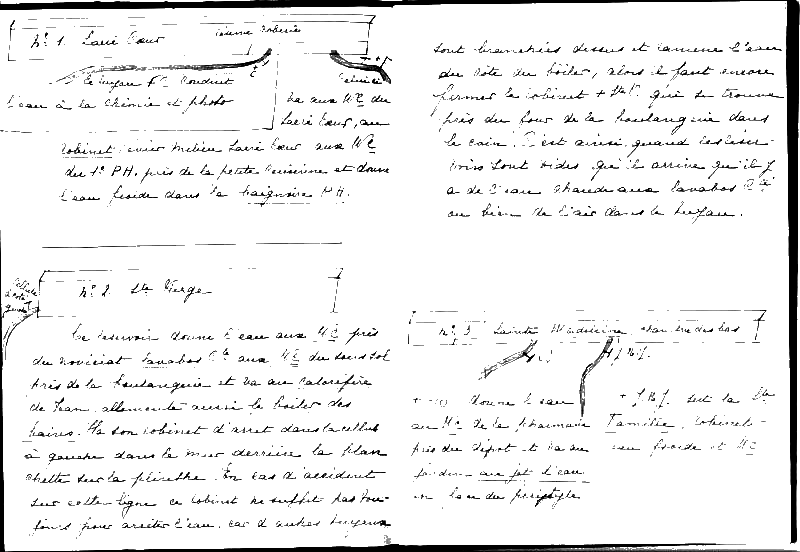 No. 1. Sacré Cœur
Le tuyau conduit
l'eau à la chimie et photo
va aux WC du
Sacré Cœur, au
robinet, évier milieu Sacré Cœur aux WC
du 1o PH. près de la petite cuisine et donne
l'eau froide dans la baignoire PH.
No. 2. Ste Vierge
Cellule
à côté
gauche
Ce reservoir donne l'eau aux WC près
du noviciat lavabos aux WC du sous sol
près de la boulangerie et va au calorifère
de Jean, allemente aussi le boiler des
bains. Il a son robinet d'arret dans la cellule
à gauche dans le mur derrière la plan
chette sur la plinthe. En cas d'accident
sur cette ligne ce robinet ne suffit pas tou-
jours pour arrêter l'eau, car d'autres tuyaux
sont branchées dessus et ramene l'eau
du côté du boiler, alors il faut encore
fermer le robinet qui se trouve
près du four de la boulangerie dans
le coin. C'est ainsi, quand les réser-
voirs sont vides, qu'il arrive qu'il y
a de l'eau chaude aux lavabos
ou bien de l'air dans le tuyau.
No. 3 Sainte Madeleine chambre des bas
donne l'eau
au WC de la pharmacie
près du dépot et va au
jardin au jet d'eau
en face du peristyle
sert la Ste
Famille, robinet
eau froide et WC